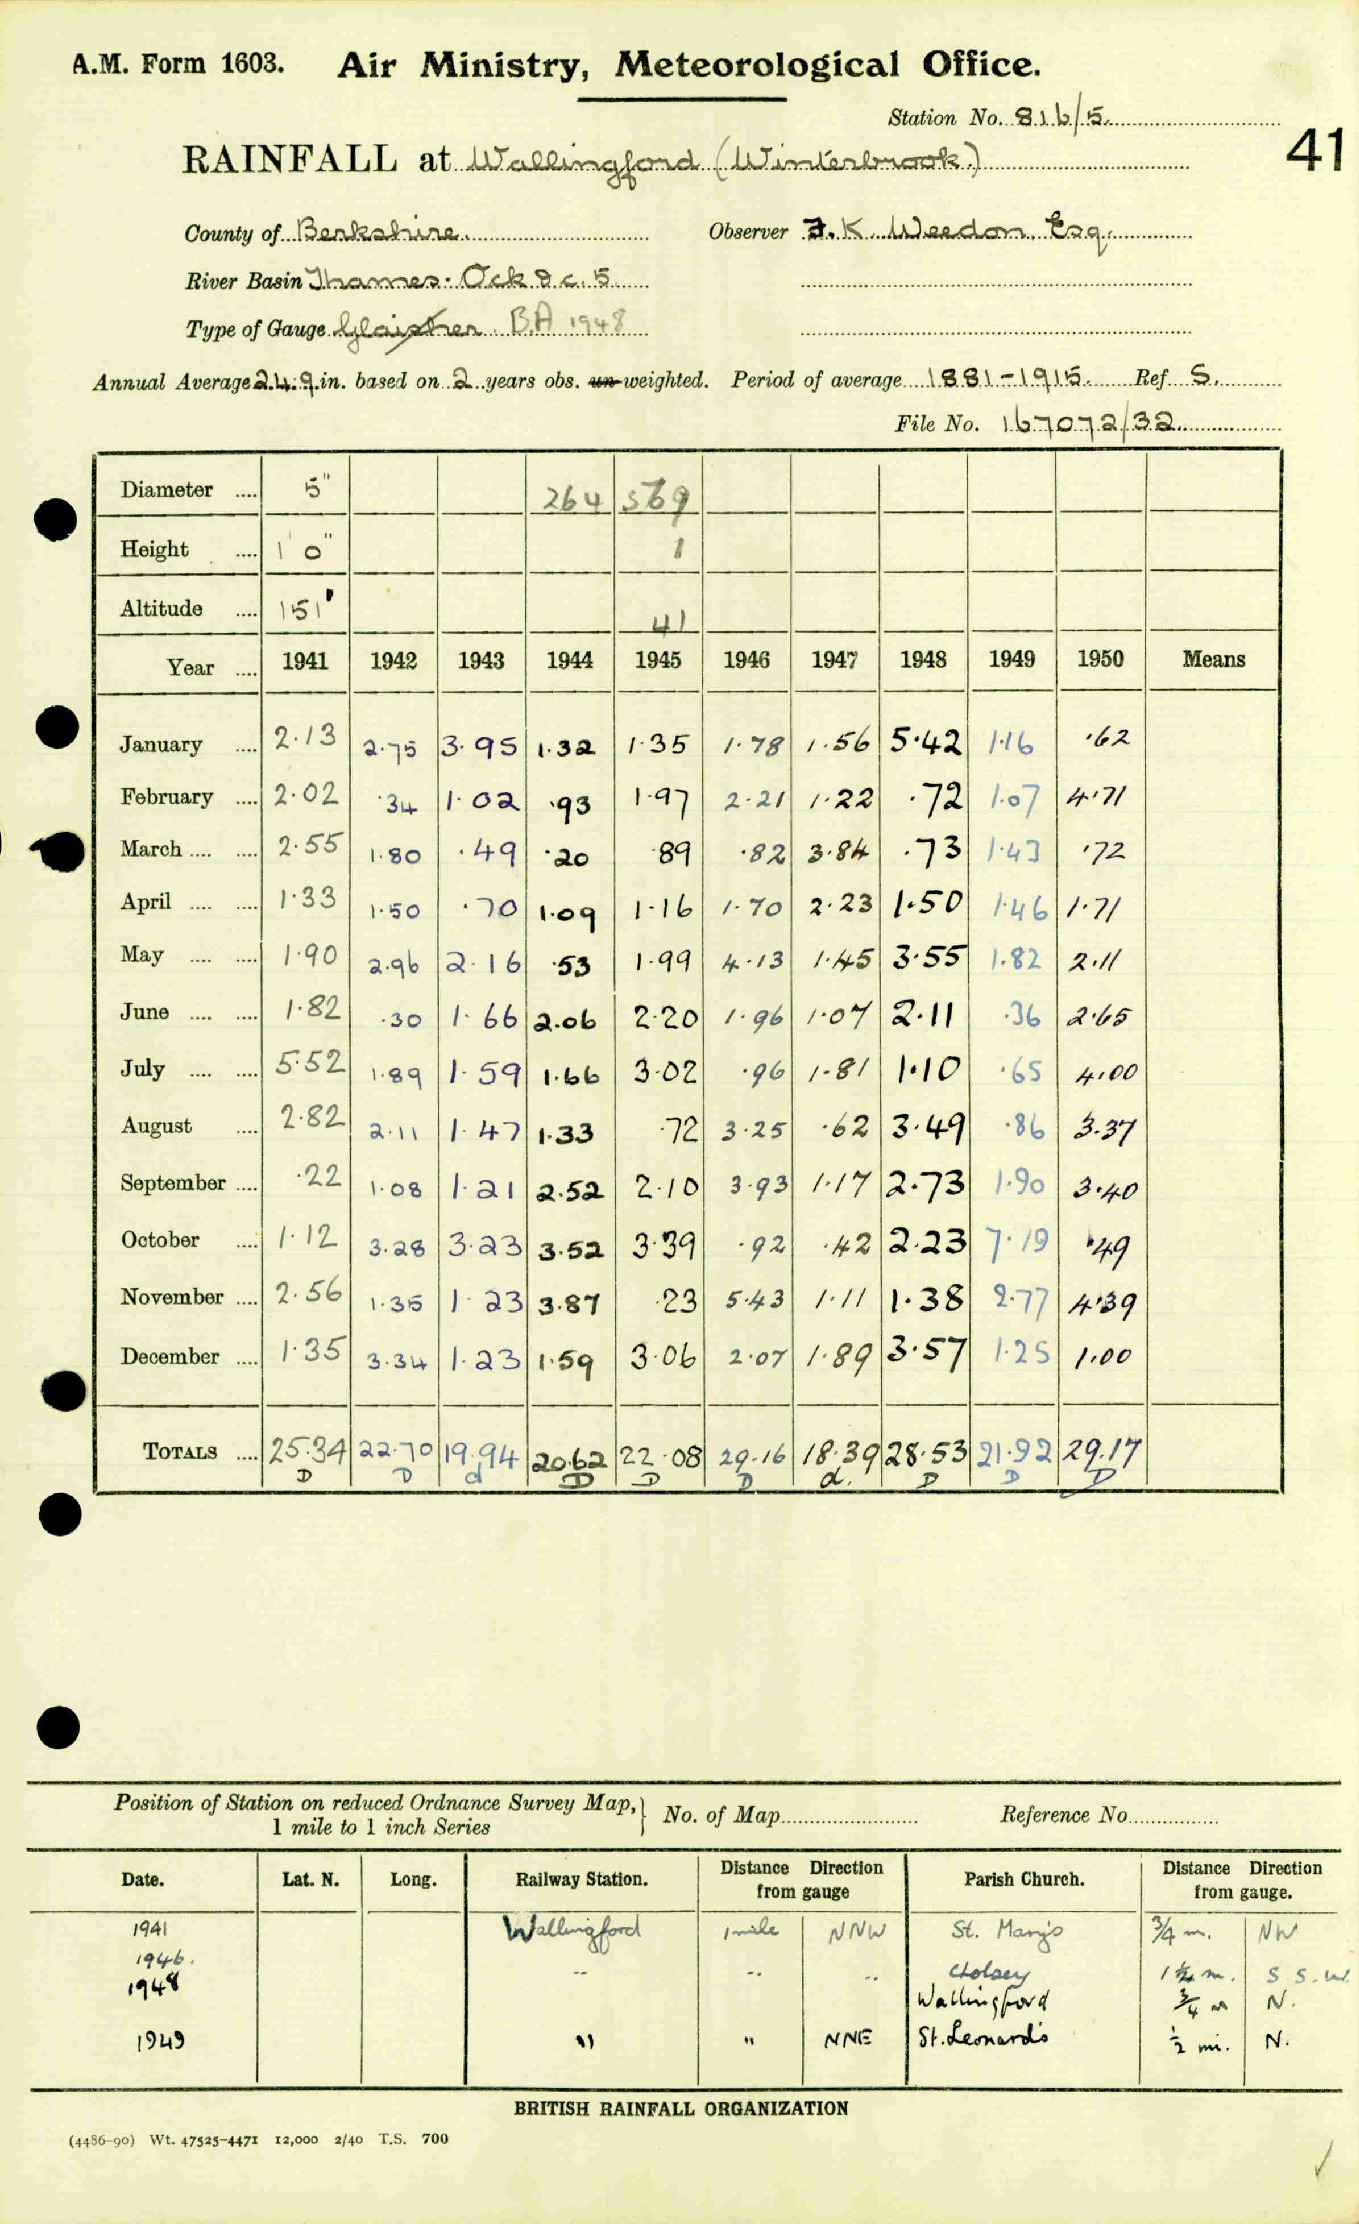 A.M. Form 1603. Air Ministry, Meteorological Office.
Station No. 816/5.
41
RAINFALL at Wallingford (Winterbrook.)
County of Berkshire. Observer F. K. Weedon, Esq.
River Basin Thames. Ock &c. 5
Type of Gauge Glaisher. B.A 1948
Annual Average 24.9 in. based on 2 years obs. un-weighted. Period of average 1881-1915. Ref S.
File No. 167072/32
Diameter .... 5" 264 569
Height .... 1' 0" 1
Altitude .... 151' 41
Year .... 1941 1942 1943 1944 1945 1946 1947 1948 1949 1950 Means
January .... 2.13 2.75 3.95 1.32 1.35 1.78 1.56 5.42 1.16 .62
February .... 2.02 .34 1.02 .93 1.97 2.21 1.22 .72 1.07 4.71
March .... .... 2.55 1.80 .49 .20 .89 .82 3.84 .73 1.43 .72
April .... .... 1.33 1.50 .70 1.09 1.16 1.70 2.23 1.50 1.46 1.71
May .... .... 1.90 2.96 2.16 .53 1.99 4.13 1.45 3.55 1.82 2.11
June .... .... 1.82 .30 1.66 2.06 2.20 1.96 1.07 2.11 .36 2.65
July .... .... 5.52 1.89 1.59 1.66 3.02 .96 1.81 1.10 .65 4.00
August .... 2.82 2.11 1.47 1.33 .72 3.25 .62 3.49 .86 3.37
September .... .22 1.08 1.21 2.52 2.10 3.93 1.17 2.73 1.90 3.40
October .... 1.12 3.28 3.23 3.52 3.39 .92 .42 2.23 7.19 .49
November .... 2.56 1.35 1.23 3.87 .23 5.43 1.11 1.38 2.77 4.39
December .... 1.35 3.34 1.23 1.59 3.06 2.07 1.89 3.57 1.25 1.00
TOTALS .... 25.34 22.70 19.94 20.62 22.08 29.16 18.39 28.53 21.92 29.17
D D d D D D d. D D D
Position of Station on reduced Ordnance Survey Map, } No. of Map Reference No.
1 mile to 1 inch Series
Date. Lat. N. Long. Railway Station. Distance Direction from gauge Parish Church. Distance Direction from gauge.
1941 Wallingford 1 mile NNW St. Mary's 3/4 m. NW
1946. " " " Cholsey m. S.S.W.
1948 Wallingford 3/4 m N.
1949 " " NNE St. Leonard's 1/2 mi. N.
BRITISH RAINFALL ORGANIZATION
(4486-90) Wt. 47525-4471 12,000 2/40 T.S. 700